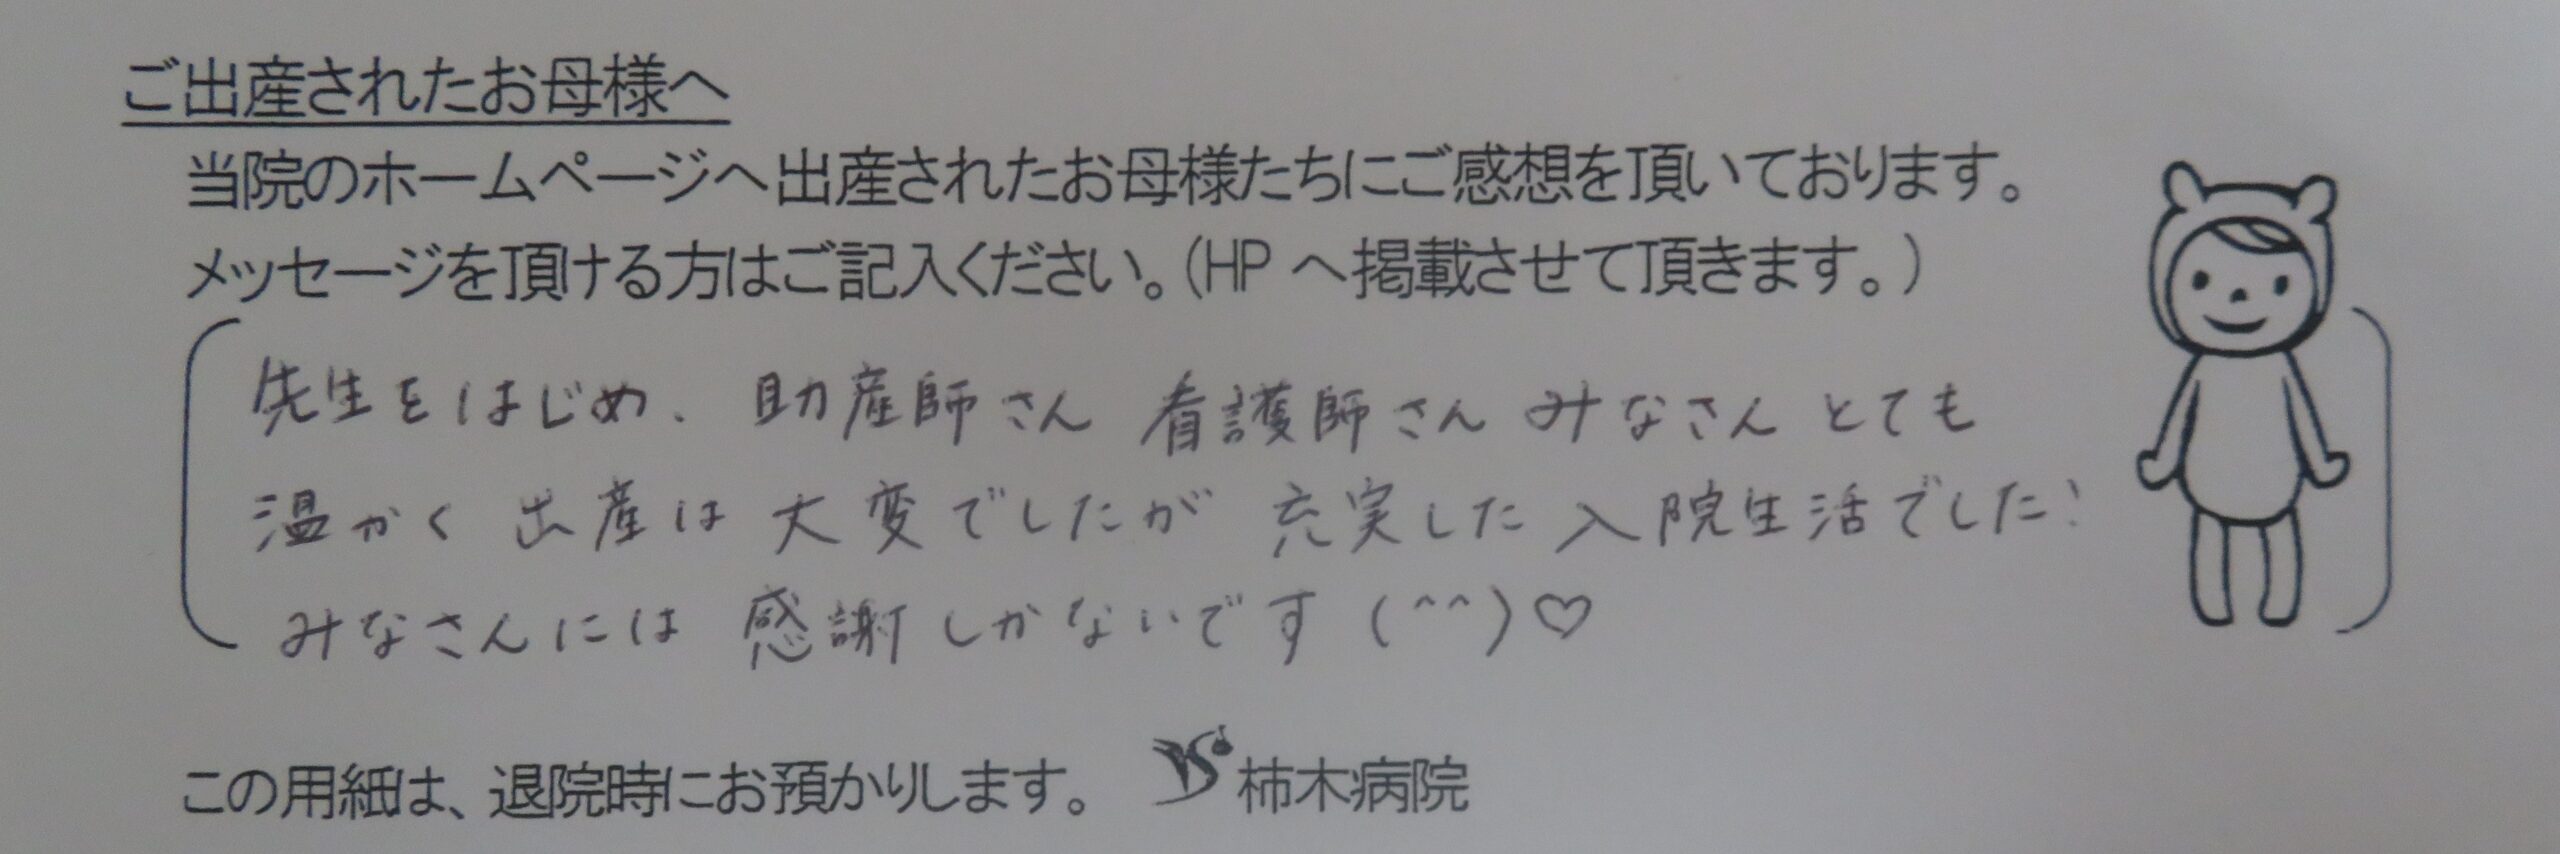 ご出産されたお母様へ
当院のホームページへ出産されたお母様たちにご感想を頂いております。
メッセージを頂ける方はご記入ください。(HP へ掲載させて頂きます。)
先生をはじめ、助産師さん 看護師さん みなさん とても
温かく 出産は 大変でしたが 充実した 入院生活でした!
みなさんには 感謝しかないです (^^)♡
この用紙は、退院時にお預かりします。 柿木病院